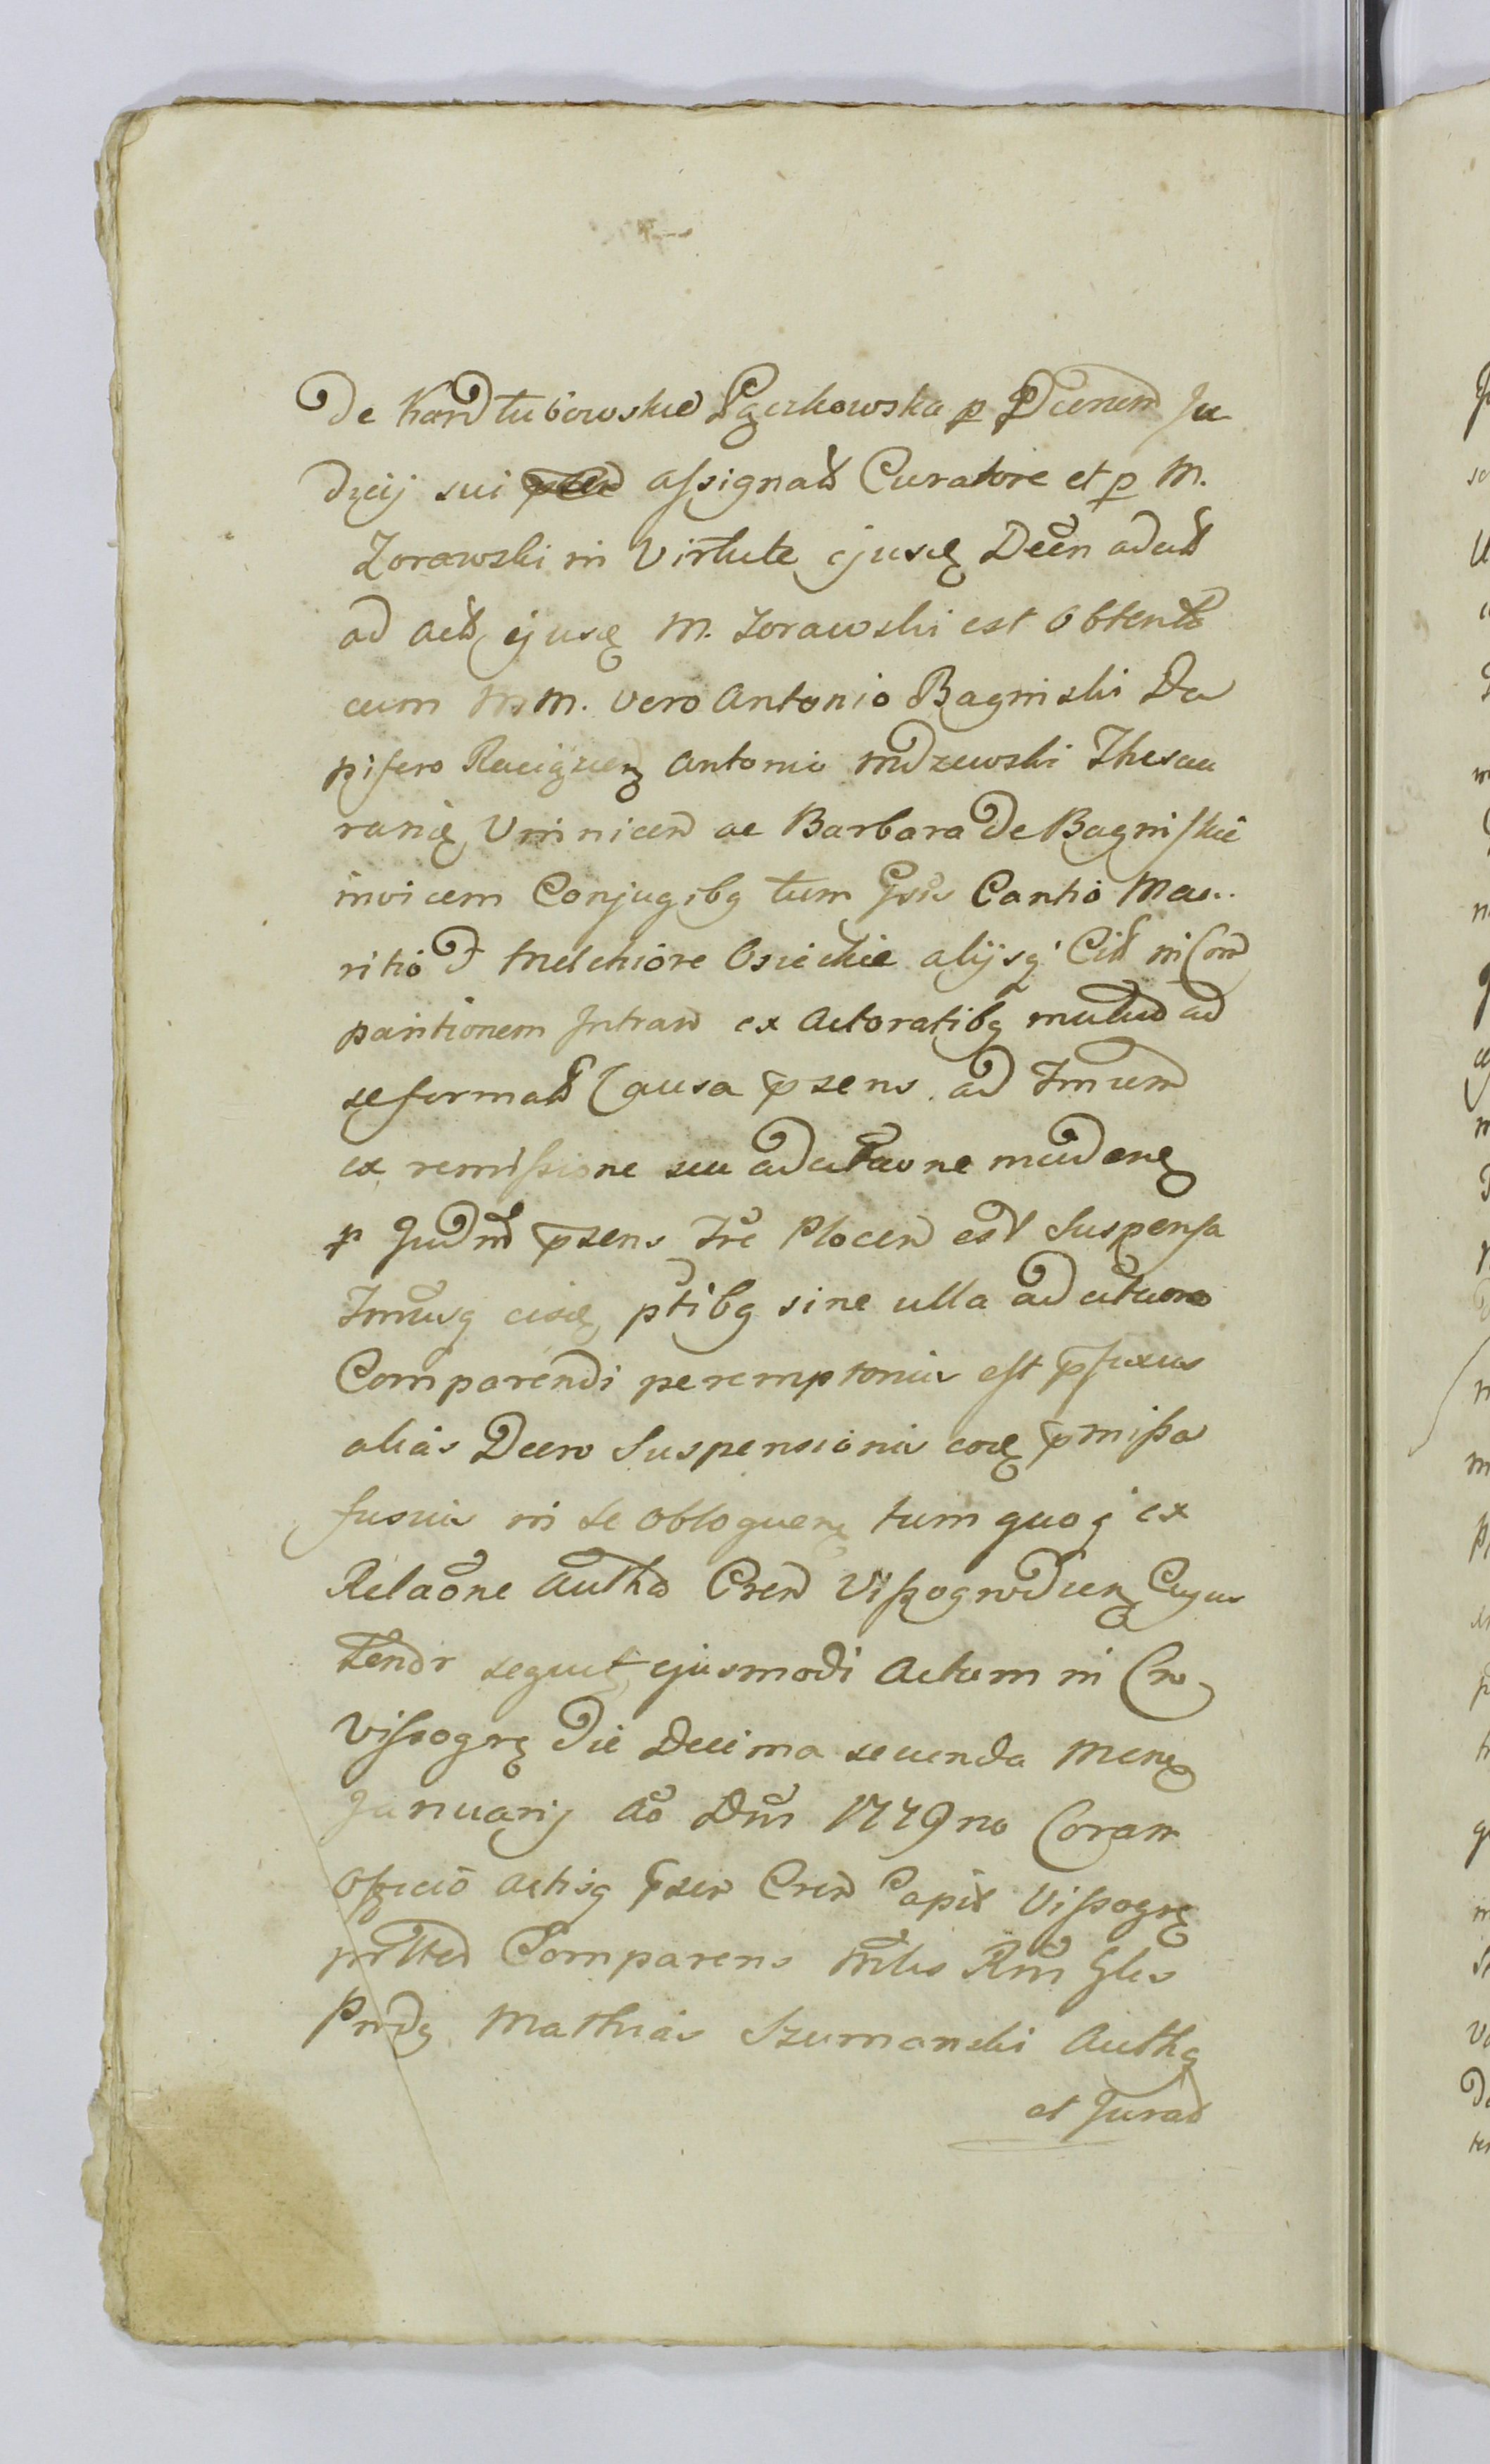 De Kardlubowskie Pączkowska p Dcenem Ju
dicij sui assignato Curatore et p M.
Zorawski in Virtute ejusę Decen adcit
ad act ejusę M. Zorawski est obtento
cum MM. vero Antonio Baginski Da
pifero Raciązien Antonio Mdzewski Thesau
rarię Vninicen ac Barbara de Baginskie
invicem Conjugibq tum Cantio Mau
ritio & Melchiore Osieckie alijsq Cit in Com
paritionem Intran ex Actoratibq mutuo ad
se format Causa psens ad Tmum
ex remissione seu adcitaone medenę
p Judm psens Tre Plocen est Suspensa
Tmusq eisdę ptibq sine ulla adcitaone
Comparendi peremptorius est pfixus
alias Decro Suspensionis eoę pmissa
fusius in se obloquenę tum quoq ex
Relaone Autha Cren Vissogrodien Cujus
tenor sequit ejusmodi Actum in Cro
Vissogrę Die Decima secunda Menę
Januarij Ao Dni 1779no Coram
Officio Actisq psen Cren Capit Vissogrę
pnlter Comparens Mlis Rni Glis
Prodq Mathias Szumanski Authq
et Jurat